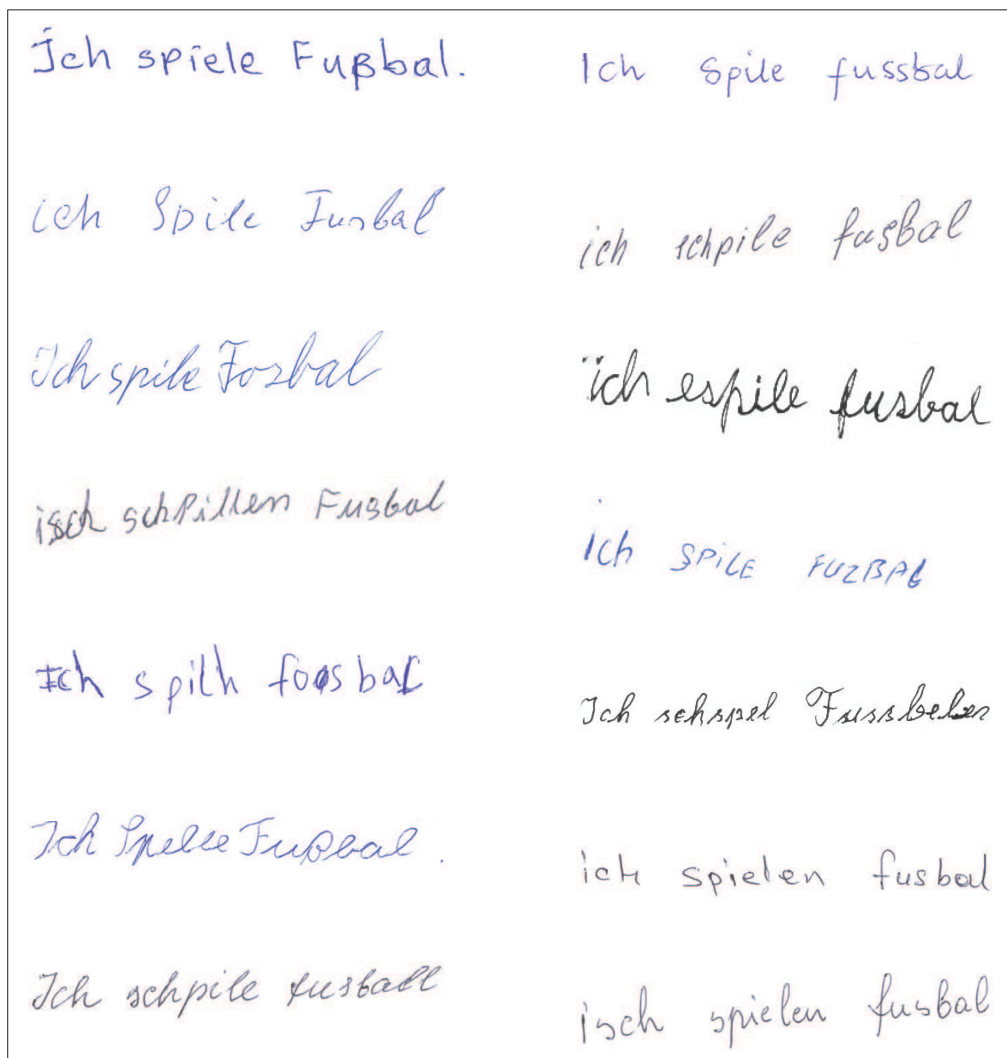 Ich spiele Fußbal.
ich Spile Fusbal
Ich spile Fozbal
isch schpillen Fusbal
Ich spilh foosbal
Ich Spelle Fußbal.
Ich schpile fusball
Ich Spile fussbal
ich schpile fußbal
ich espile fusbal
ich SPiLE FUZBAL
Ich schspel Fussbeben
ich spielen fusbal
isch spielen fusbal